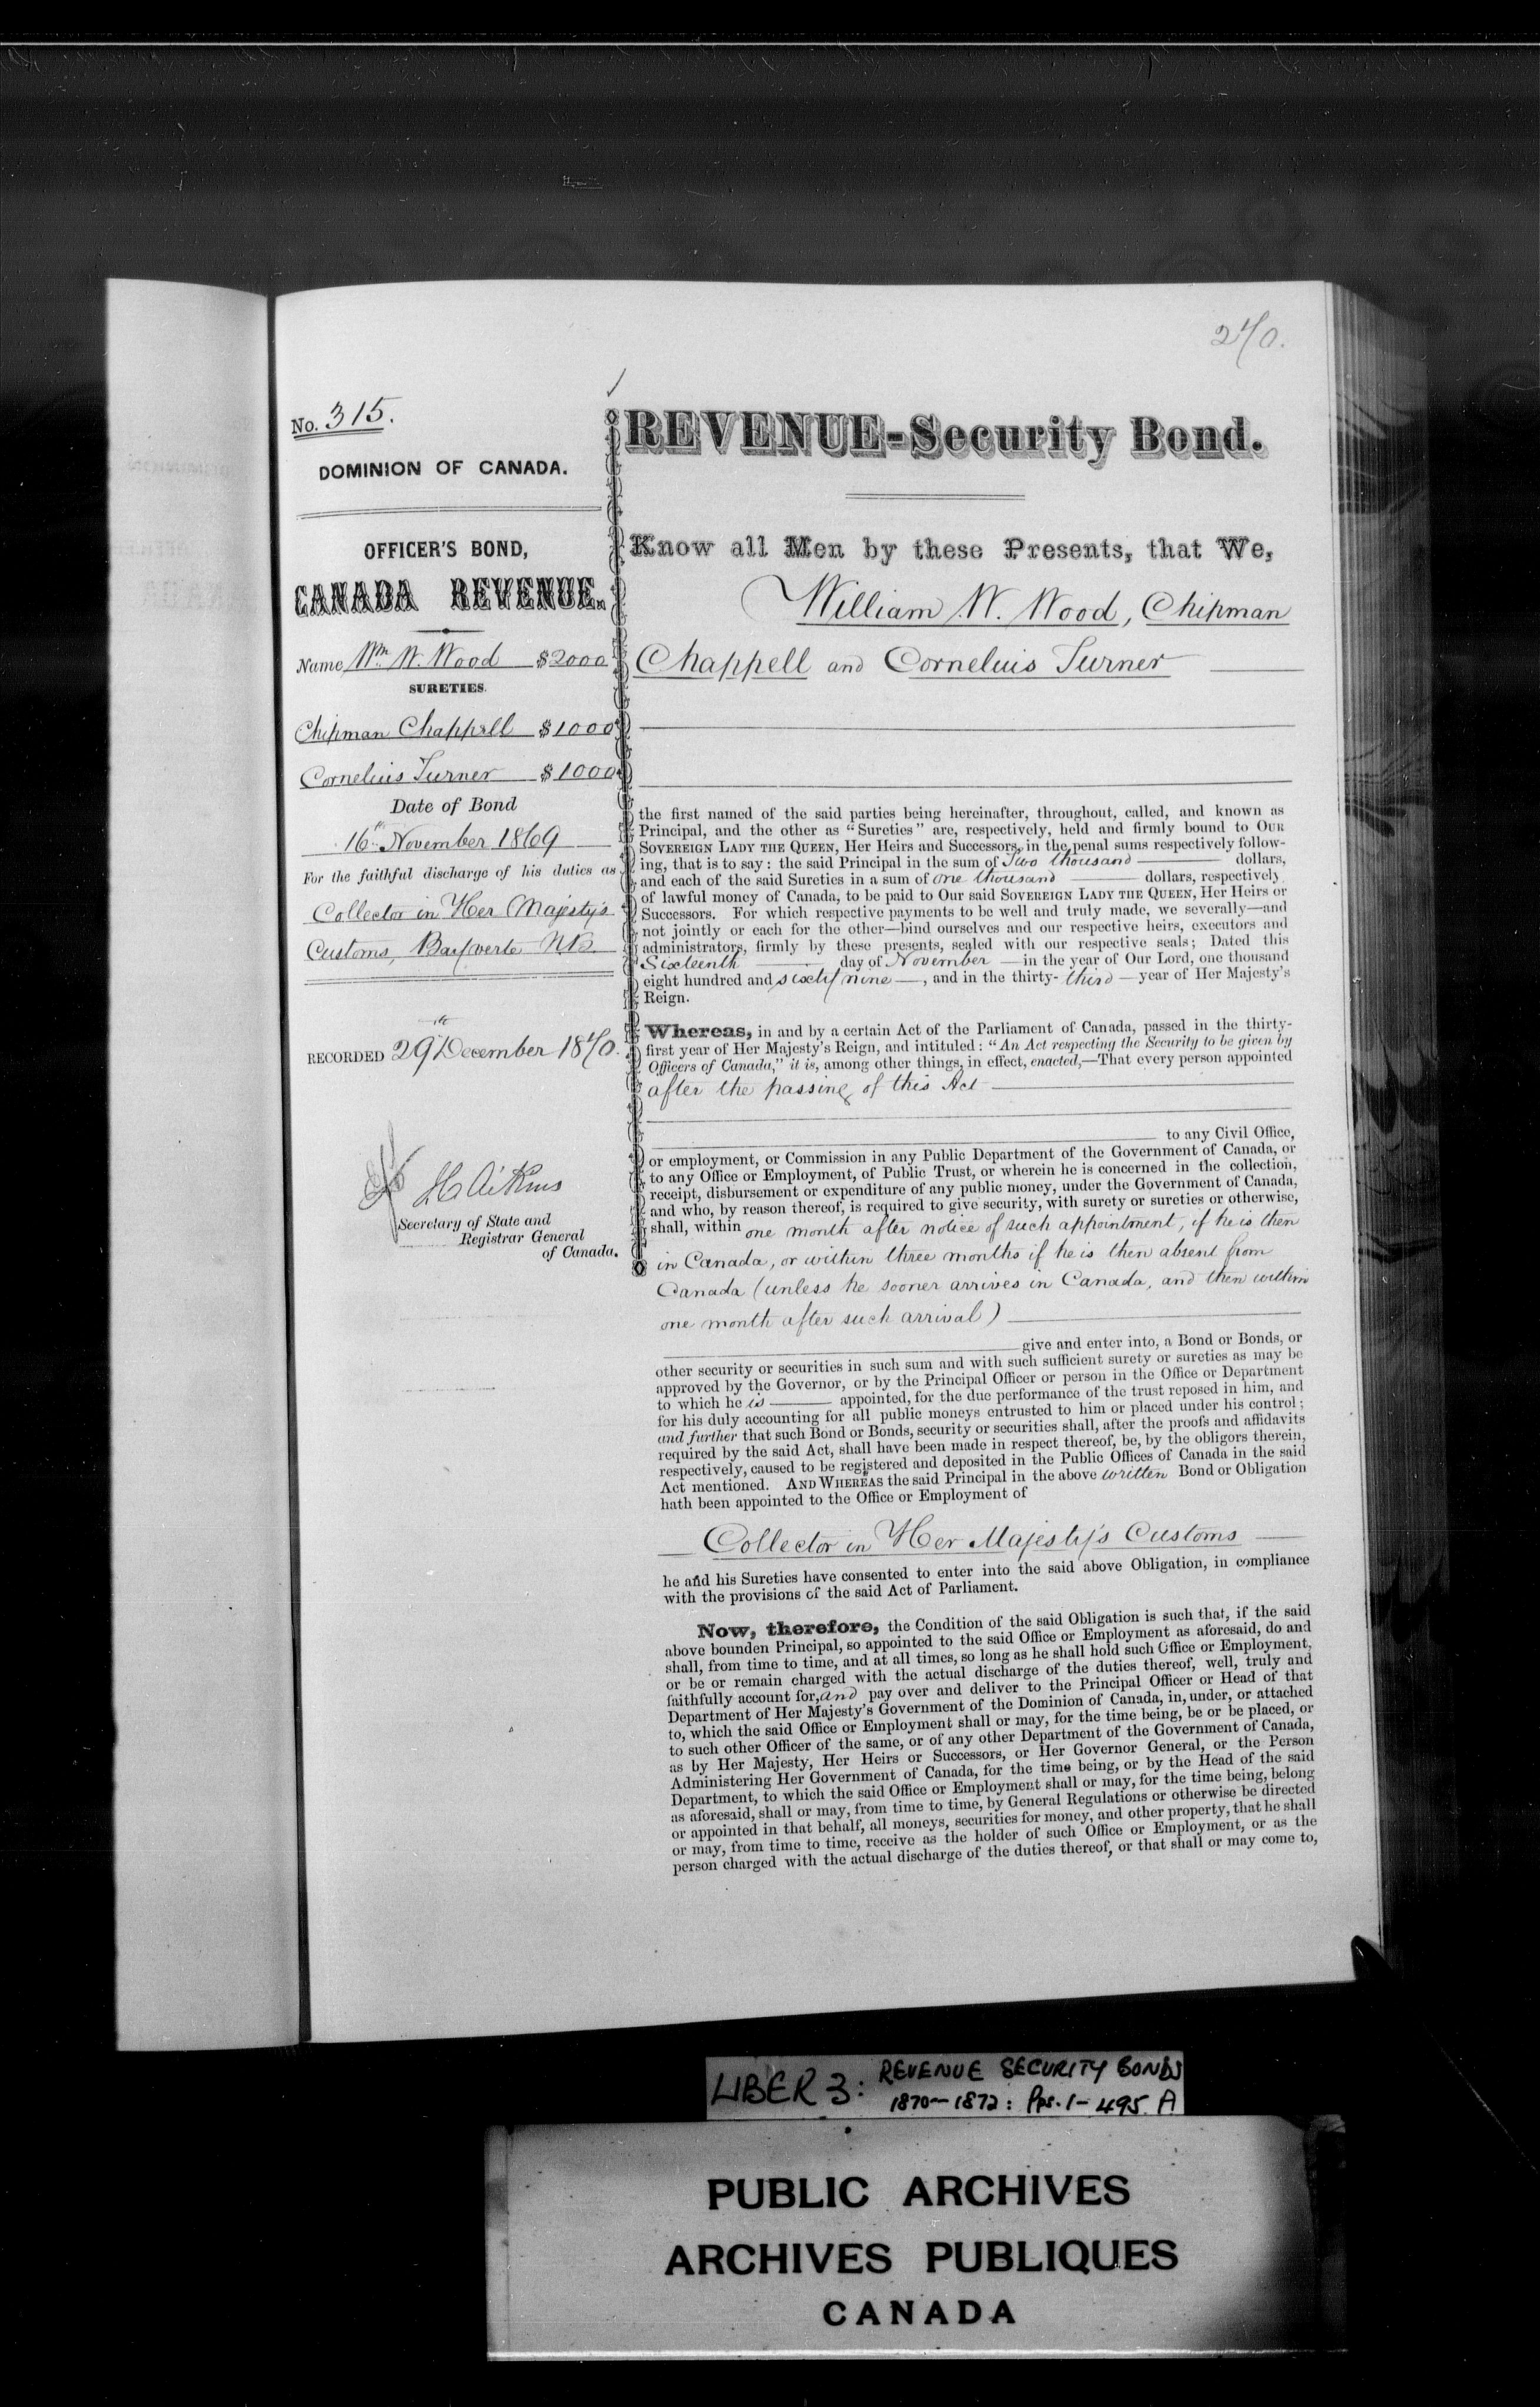 270.
No. 315.
DOMINION OF CANADA.
OFFICER'S BOND,
CANADA REVENUE.
Name Wm W. Wood $2000
SURETIES.
Chipman Chappell $1000
Cornelius Turner $1000
Date of Bond
16th November 1869
For the faithful discharge of his duties as
Collector in Her Majesty's
Customs, Baieverte N.B.
RECORDED 29th December 1870.
Aikins
Secretary of State and
Registrar General
of Canada.
REVENUE-Security Bond.
Know all Men by these Presents, that We,
William W. Wood, Chipman
Chappell and Cornelius Turner
the first named of the said parties being hereinafter, throughout, called, and known as
Principal, and the other as "Sureties" are, respectively, held and firmly bound to OUR
SOVEREIGN LADY THE QUEEN, Her Heirs and Successors, in the penal sums respectively follow-
ing, that is to say: the said Principal in the sum of Two thousand dollars,
and each of the said Sureties in a sum of one thousand dollars, respectively
of lawful money of Canada, to be paid to Our said SOVEREIGN LADY THE QUEEN, Her Heirs or
Successors. For which respective payments to be well and truly made, we severally—and
not jointly or each for the other—bind ourselves and our respective heirs, executors and
administrators, firmly by these presents, sealed with our respective seals; Dated this
Sixteenth day of November — in the year of Our Lord, one thousand
eight hundred and sixty nine —, and in the thirty- third — year of Her Majesty's
Reign.
Whereas, in and by a certain Act of the Parliament of Canada, passed in the thirty-
first year of Her Majesty's Reign, and intituled: "An Act respecting the Security to be given by
Officers of Canada," it is, among other things, in effect, enacted,—That every person appointed
after the passing of this Act
to any Civil Office,
or employment, or Commission in any Public Department of the Government of Canada, or
to any Office or Employment, of Public Trust, or wherein he is concerned in the collection,
receipt, disbursement or expenditure of any public money, under the Government of Canada,
and who, by reason thereof, is required to give security, with surety or sureties or otherwise,
shall, within one month after notice of such appointment, if he is then
in Canada, or within three months if he is then absent from
Canada (unless he sooner arrives in Canada, and then within
one month after such arrival)
give and enter into, a Bond or Bonds, or
other security or securities in such sum and with such sufficient surety or sureties as may be
approved by the Governor, or by the Principal Officer or person in the Office or Department
to which he is appointed, for the due performance of the trust reposed in him, and
for his duly accounting for all public moneys entrusted to him or placed under his control;
and further that such Bond or Bonds, security or securities shall, after the proofs and affidavits
required by the said Act, shall have been made in respect thereof, be, by the obligors therein,
respectively, caused to be registered and deposited in the Public Offices of Canada in the said
Act mentioned. AND WHEREAS the said Principal in the above written Bond or Obligation
hath been appointed to the Office or Employment of
Collector in Her Majesty's Customs
he and his Sureties have consented to enter into the said above Obligation, in compliance
with the provisions of the said Act of Parliament.
Now, therefore, the Condition of the said Obligation is such that, if the said
above bounden Principal, so appointed to the said Office or Employment as aforesaid, do and
shall, from time to time, and at all times, so long as he shall hold such Office or Employment,
or be or remain charged with the actual discharge of the duties thereof, well, truly and
faithfully account for, and pay over and deliver to the Principal Officer or Head of that
Department of Her Majesty's Government of the Dominion of Canada, in, under, or attached
to, which the said Office or Employment shall or may, for the time being, be or be placed, or
to such other Officer of the same, or of any other Department of the Government of Canada,
as by Her Majesty, Her Heirs or Successors, or Her Governor General, or the Person
Administering Her Government of Canada, for the time being, or by the Head of the said
Department, to which the said Office or Employment shall or may, for the time being, belong
as aforesaid, shall or may, from time to time, by General Regulations or otherwise be directed
or appointed in that behalf, all moneys, securities for money, and other property, that he shall
or may, from time to time, receive as the holder of such Office or Employment, or as the
person charged with the actual discharge of the duties thereof, or that shall or may come to,
LIBER 3: REVENUE SECURITY BONDS
1870-1872: Pps. 1-495 A
PUBLIC ARCHIVES
ARCHIVES PUBLIQUES
CANADA